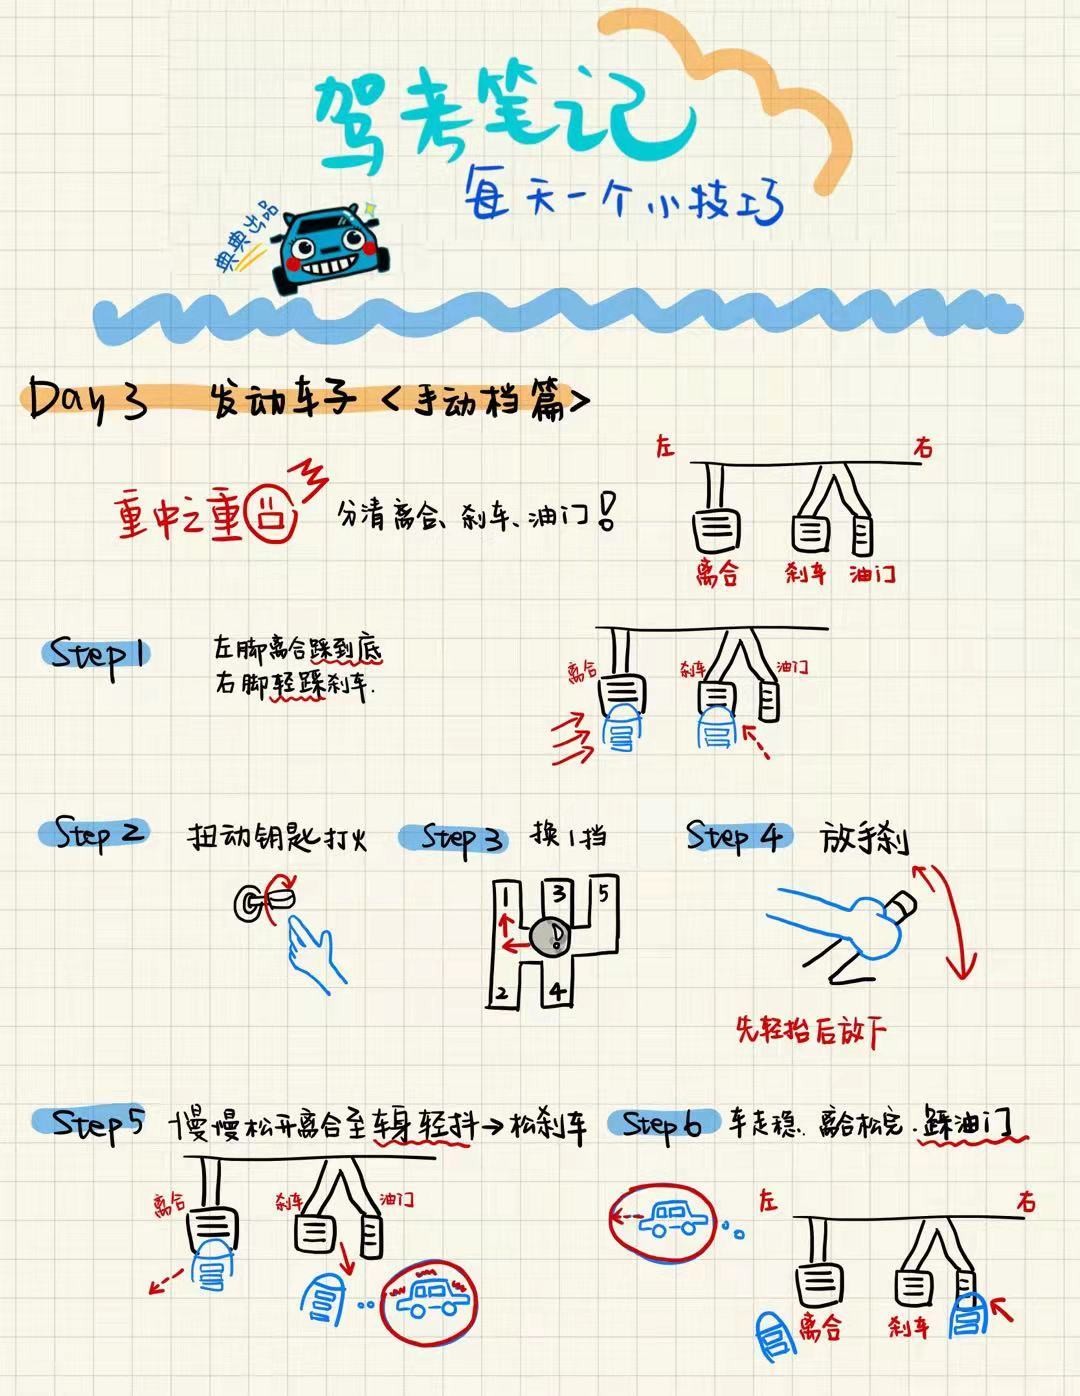 驾考笔记
每天一个小技巧
Day 3 发动车子<手动档篇>
左 右
重中之重 分清离合、刹车、油门!
离合 刹车 油门
Step 1
左脚离合踩到底
右脚轻踩刹车.
离合 刹车 油门
Step 2 扭动钥匙打火
Step 3 换1挡
1 3 5
2 4
Step 4 放手刹
先轻抬后放下
Step 5 慢慢松开离合至车身轻抖→松刹车
离合 刹车 油门
Step 6 车走稳.离合松完.踩油门
左 右
离合 刹车